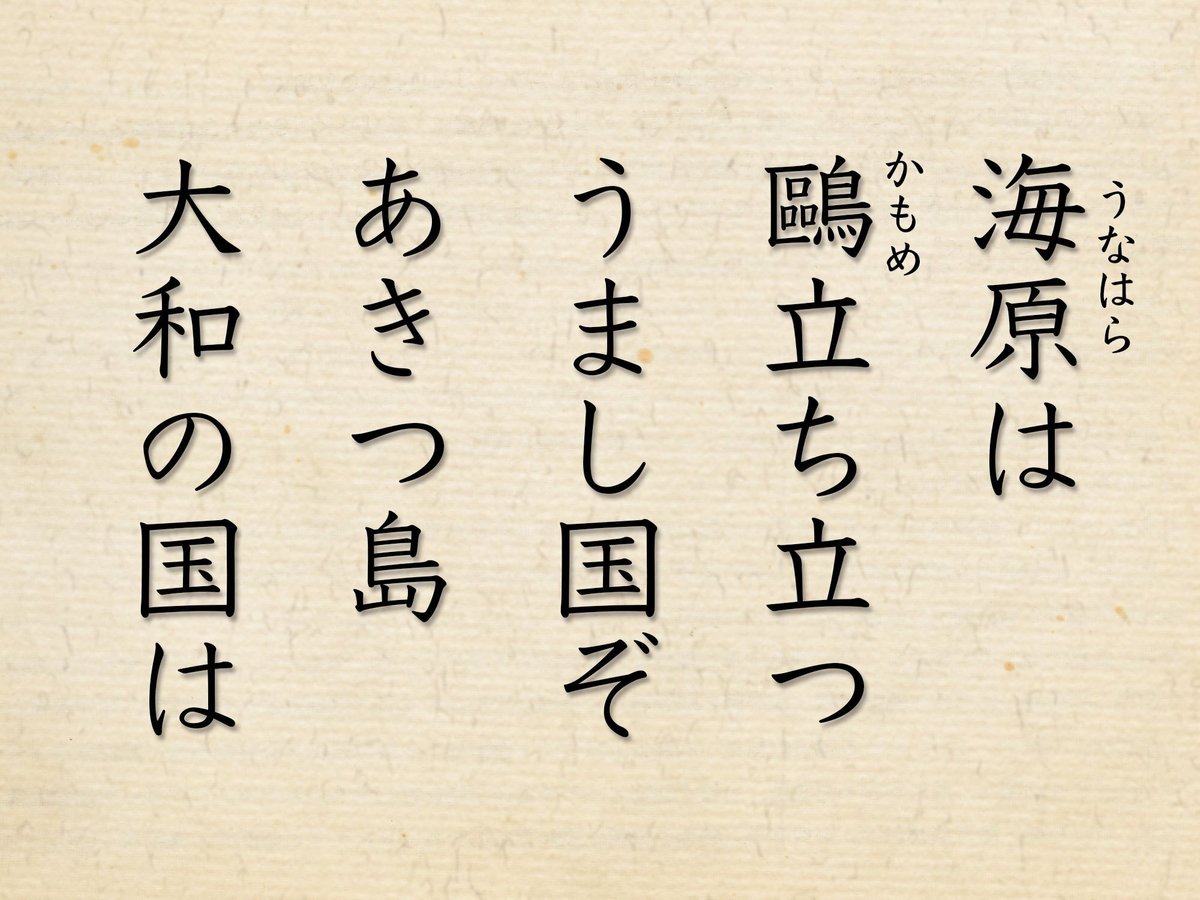 海原は
うなはら
鷗立ち立つ
かもめ
うまし国ぞ
あきつ島
大和の国は